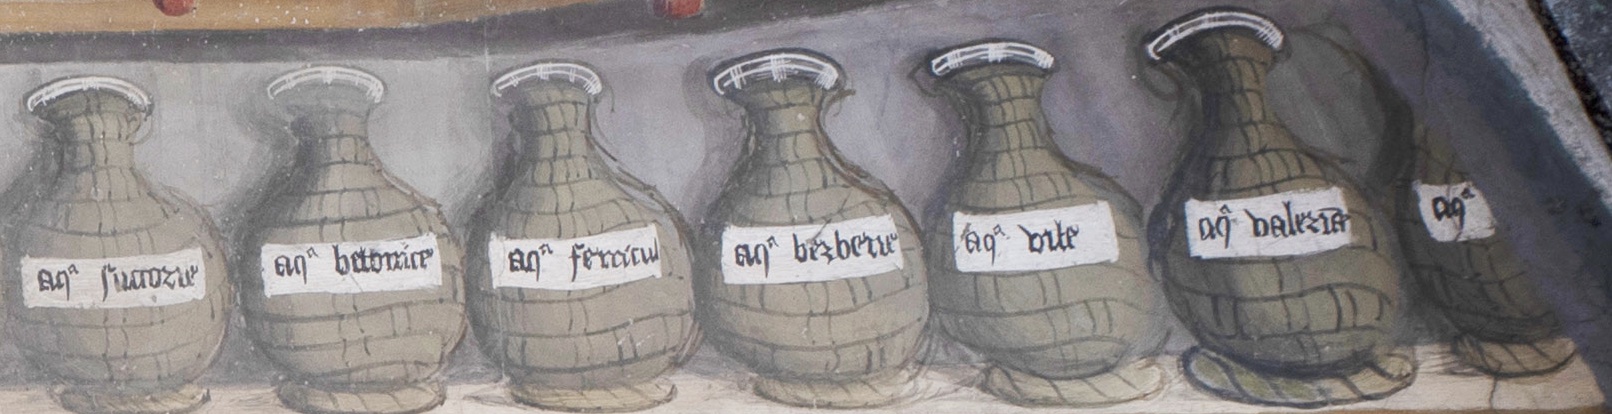 aqª
aqª betonice
aqª fenicul
aqª berberie
aqª vite
aqª valeria
aqª